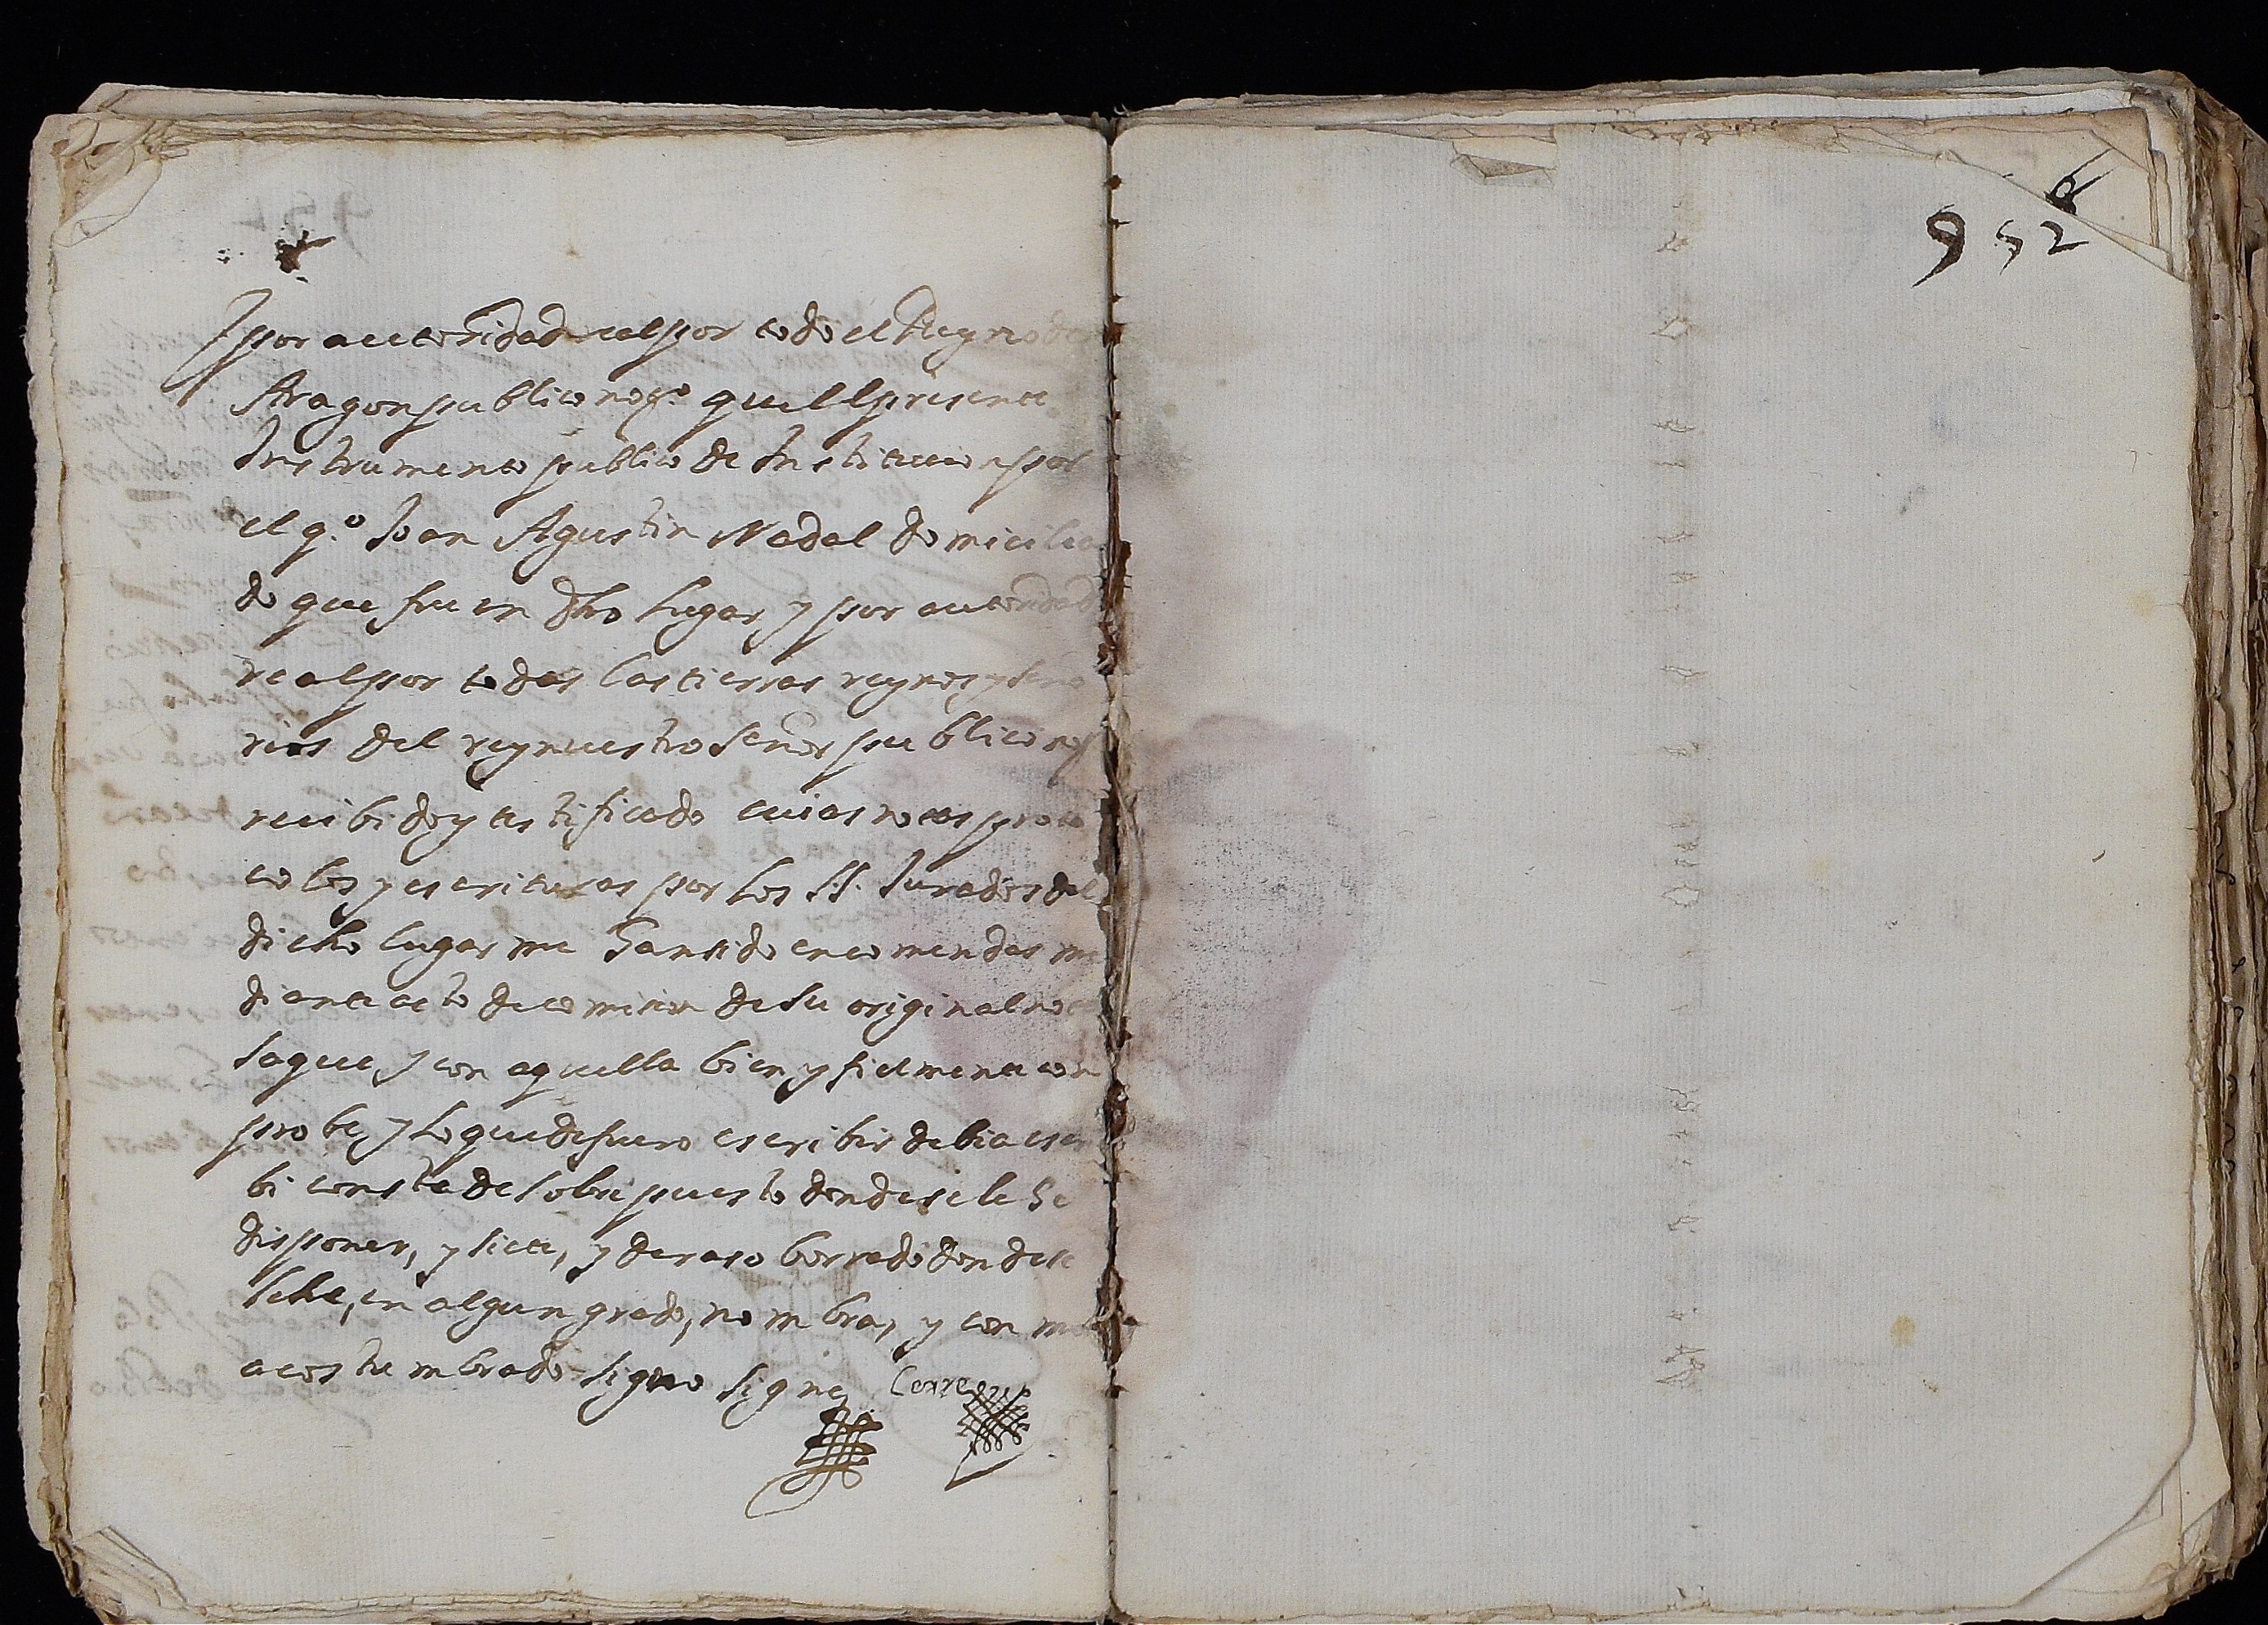 952
y por auctoridad real por todo el Reyno de
Aragon publico noto. qu el presente
Instrumento publico de Institucion por
el qo. Joan Agustin Nadal domicilia
do que fue en dho lugar, y por autoridad
real por todas las tierras reynos y seño
rios del rey nuestro Señor publico not
recibido y testificado cuias notas proto
colos y escrituras por los SS. Jurados del
dicho lugar me han sido encomendas me
diante acto de comision de su original no
saque, y con aquella bien y fielmente com
probe, y lo que de fuero escribir debia escri
bi conste de sobrepuesto donde se le he
disponer, y siete, y de raso borrado donde se
lehe, en algun grado, nombra, y con mi
acostumbrado signo signe Cerre